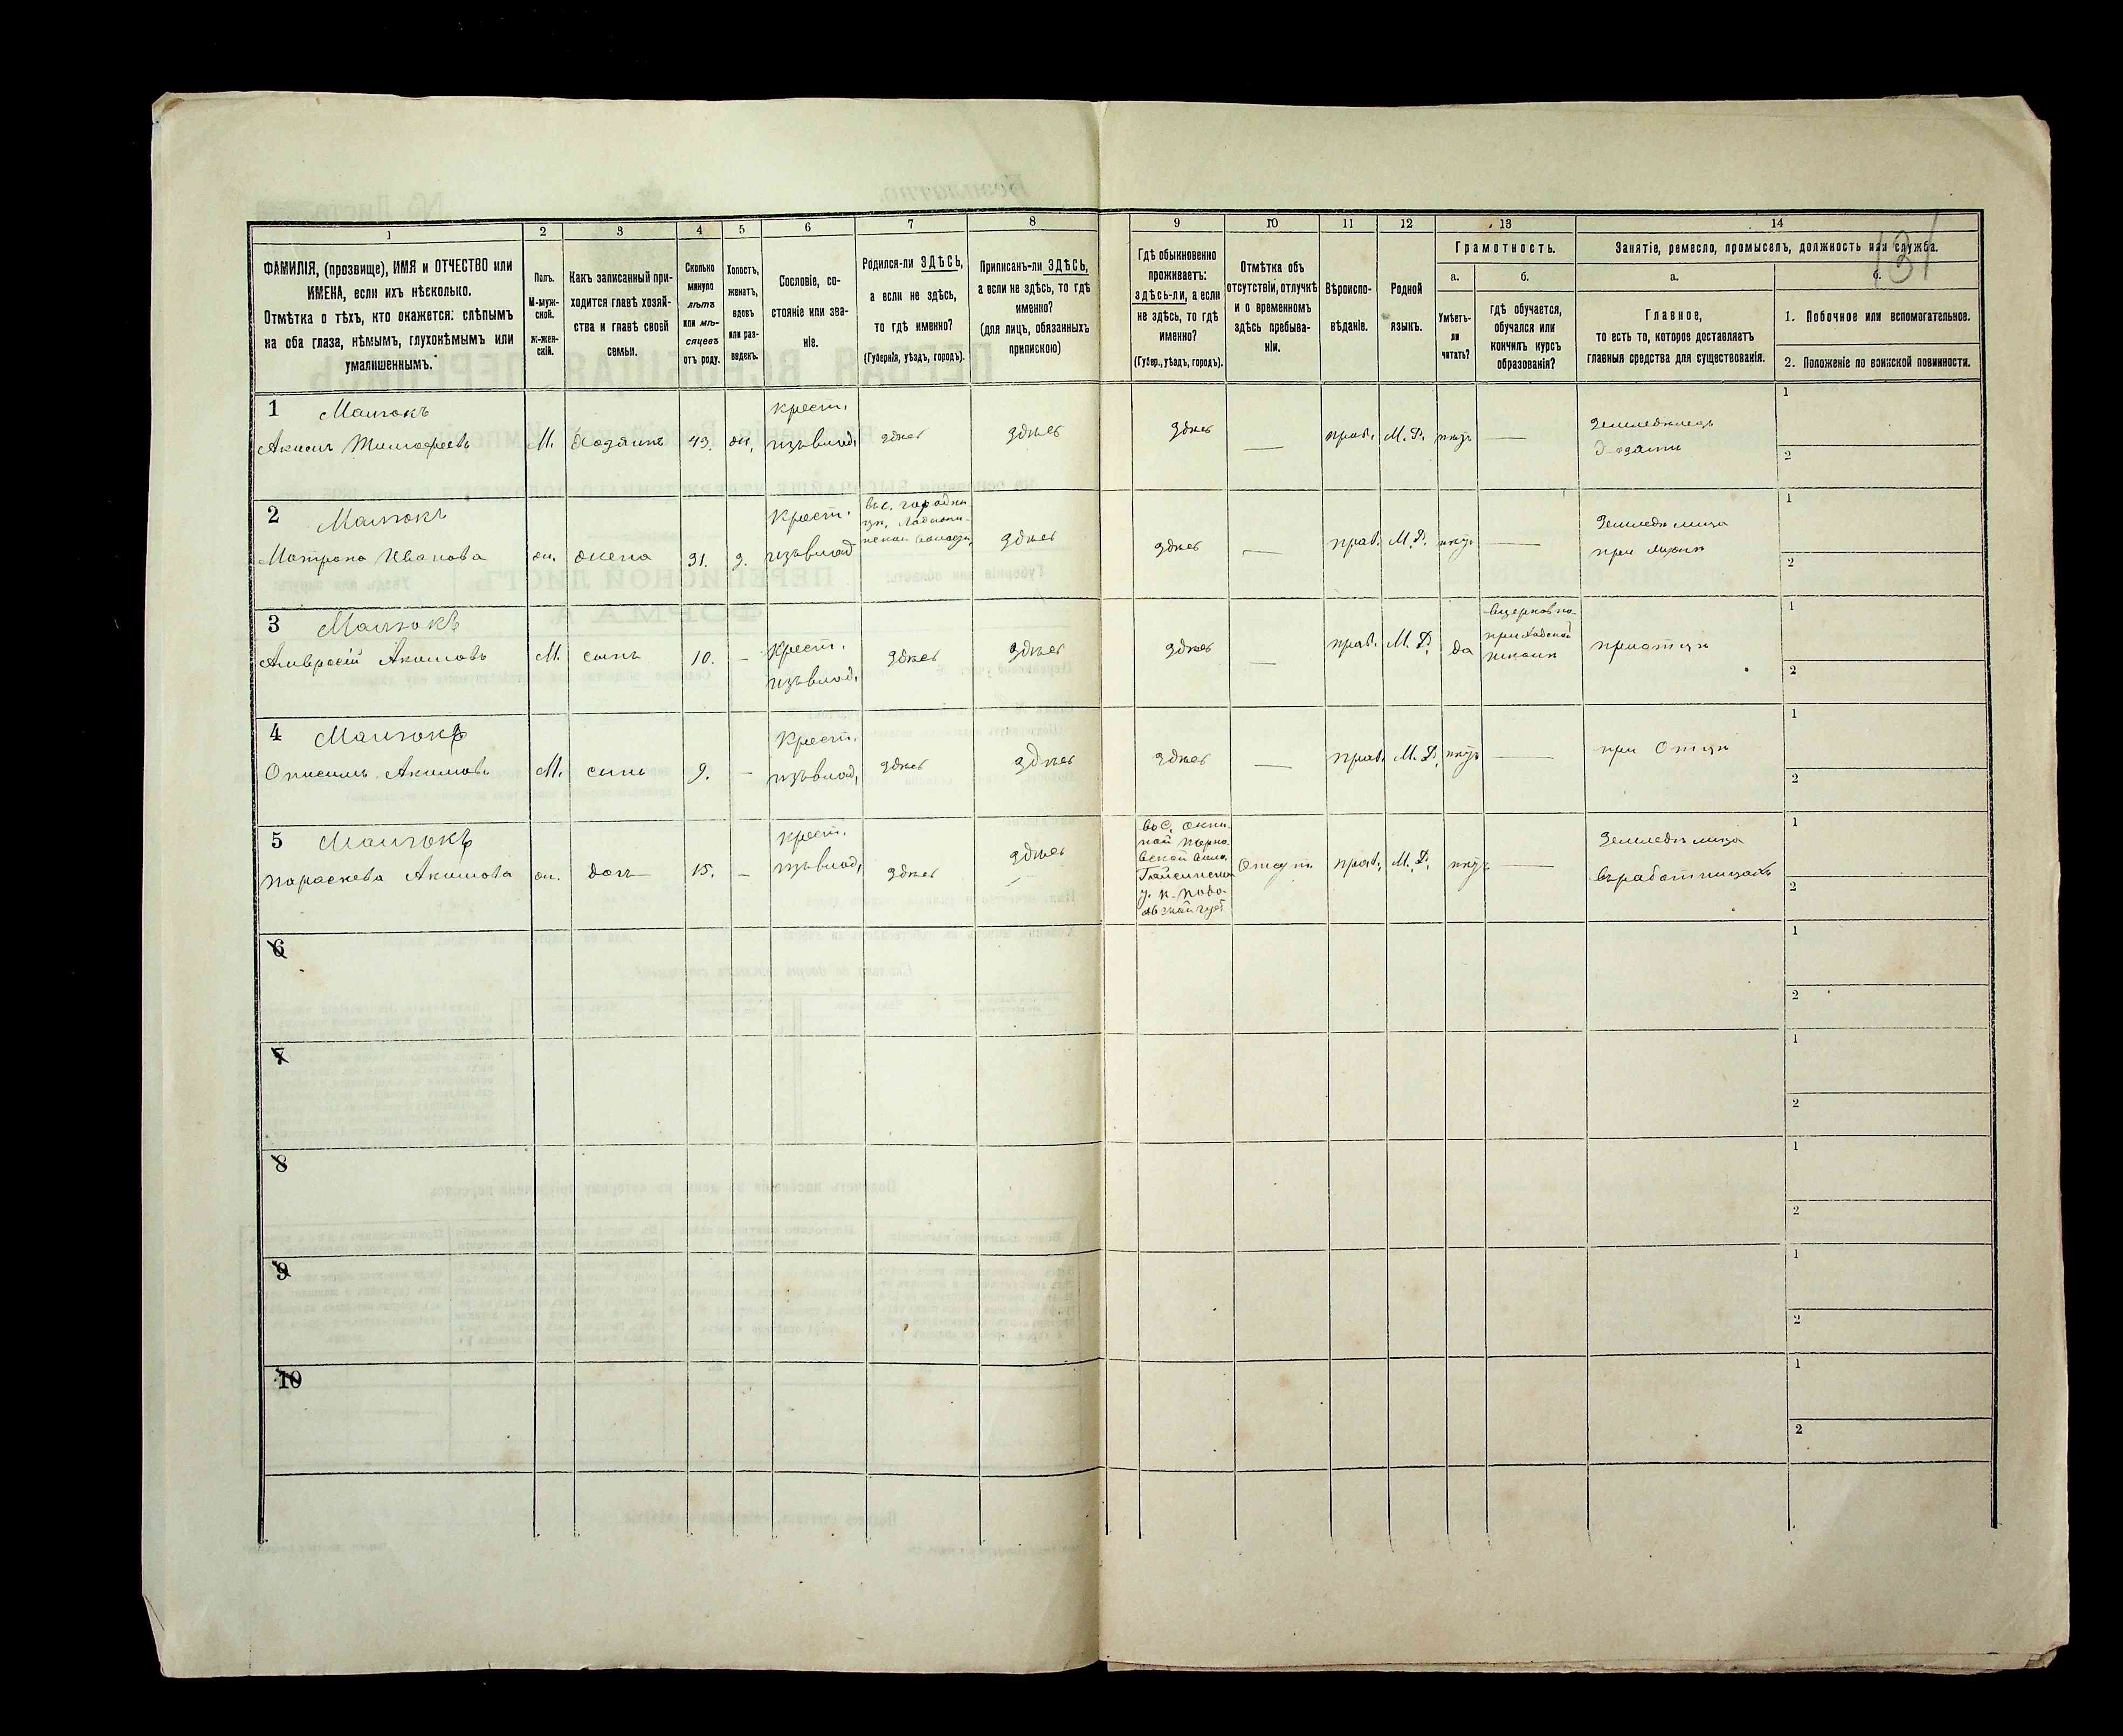 131
1 2 3 4 5 6 7 8 9 10 11 12 13 14
ФАМИЛІЯ, (прозвище), ИМЯ и ОТЧЕСТВО или
ИМЕНА, если ихъ нѣсколько.
Отмѣтка о тѣхъ, кто окажется: слѣпымъ
на оба глаза, нѣмымъ, глухонѣмымъ или
умалишеннымъ.
Полъ.
М-муж-
ской.
Ж-жен-
скій.
Какъ записанный при-
ходится главѣ хозяй-
ства и главѣ своей
семьи.
Сколько
минуло
лѣтъ
или мѣ-
сяцевъ
отъ роду.
Холостъ,
женатъ,
вдовъ
или раз-
веденъ.
Сословіе, со-
стояніе или зва-
ніе.
Родился-ли ЗДѢСЬ,
а если не здѣсь,
то гдѣ именно?
(Губернія, уѣздъ, городъ).
Приписанъ-ли ЗДѢСЬ,
а если не здѣсь, то гдѣ
именно?
(для лицъ, обязанныхъ
припискою)
Гдѣ обыкновенно
проживаетъ:
здѣсь-ли, а если
не здѣсь, то гдѣ
именно?
(Губер., уѣздъ, городъ).
Отмѣтка объ
отсутствіи, отлучкѣ
и о временномъ
здѣсь пребыва-
ніи.
Вѣроиспо-
вѣданіе.
Родной
языкъ.
Грамотность.
а.
Умѣетъ-
ли
читать?
б.
гдѣ обучается,
обучался или
кончилъ курсъ
образованія?
Занятіе, ремесло, промыселъ, должность или служба.
а.
Главное,
то есть то, которое доставляетъ
главныя средства для существованія.
б.
1. Побочное или вспомогательное.
2. Положеніе по воинской повинности.
1
Акимъ Тимофеевъ М. Хозяинъ 43. ж. крест. изъ влад. здѣсь здѣсь здѣсь — прав. М. Р. нѣтъ — Земледѣлецъ
Хозяинъ
1
2
2
Матрона Иванова ж. жена 31. з. крест. изъ влад здѣсь здѣсь — прав. М. Р. нѣтъ —
при мужѣ
1
2
3
Амвросій Акимовъ М. сынъ 10. — крест. изъ влад. здѣсь здѣсь здѣсь — прав. М. Р. да
въ церковно-
приходской
школѣ
при отцѣ
1
2
4
Онисимъ Акимовъ М. сынъ 9. — крест. изъ влад. здѣсь здѣсь здѣсь — прав. М. Р. нѣтъ — при Отцѣ
1
2
5
Параскева Акимова ж. дочь 15. — крест. изъ влад. здѣсь здѣсь
Гайсинскаго
у. Подо-
льской губ
Отсут. прав. М. Р. нѣтъ —
въ работницахъ
1
2
6
1
2
7
1
2
8
1
2
9
1
2
10
1
2